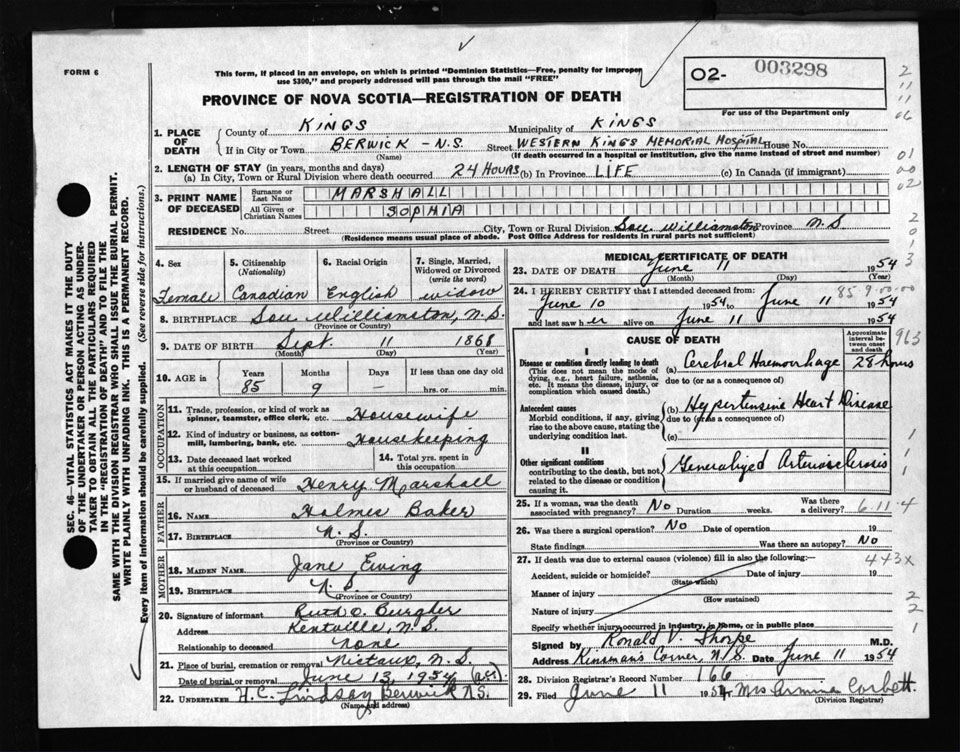 FORM 6
This form, if placed in an envelope, on which is printed "Dominion Statistics—Free, penalty for improper
use $300," and properly addressed will pass through the mail "FREE"
O2- 003298
For use of the Department only
PROVINCE OF NOVA SCOTIA—REGISTRATION OF DEATH
2
11
11
06
01
00
02
2
0
1
3
1. PLACE OF DEATH
County of KINGS Municipality of KINGS
If in City or Town BERWICK - N.S. Street WESTERN KINGS MEMORIAL HOSPITAL House No.
(Name) (If death occurred in a hospital or institution, give the name instead of street and number)
2. LENGTH OF STAY (in years, months and days)
(a) In City, Town or Rural Division where death occurred 24 HOURS (b) In Province LIFE (c) In Canada (if immigrant)
3. PRINT NAME OF DECEASED
Surname or Last Name MARSHALL
All Given or Christian Names SOPHIA
RESIDENCE No. Street City, Town or Rural Division Sou Williamston Province N.S
(Residence means usual place of abode. Post Office Address for residents in rural parts not sufficient)
4. Sex Female
5. Citizenship (Nationality) Canadian
6. Racial Origin English
7. Single, Married, Widowed or Divorced (write the word) widow
8. BIRTHPLACE Sou Williamston, N.S.
(Province or Country)
9. DATE OF BIRTH Sept. 11 1868
(Month) (Day) (Year)
10. AGE in Years 85 Months 9 Days – If less than one day old hrs. or min.
OCCUPATION
11. Trade, profession, or kind of work as spinner, teamster, office clerk, etc. Housewife
12. Kind of industry or business, as cotton-mill, lumbering, bank, etc. Housekeeping
13. Date deceased last worked at this occupation
14. Total yrs. spent in this occupation
15. If married give name of wife or husband of deceased Henry Marshall
FATHER
16. NAME Holmes Baker
17. BIRTHPLACE N.S.
(Province or Country)
MOTHER
18. MAIDEN NAME Jane Ewing
19. BIRTHPLACE N.S.
(Province or Country)
20. Signature of informant Ruth O. Burgher
Address Kentville, N.S.
Relationship to deceased None
21. Place of burial, cremation or removal Nictaux, N.S.
Date of burial or removal June 13, 1954
22. UNDERTAKER H.C. Lindsay Berwick N.S.
(Name and address)
MEDICAL CERTIFICATE OF DEATH
23. DATE OF DEATH June 11 1954
(Month) (Day) (Year)
24. I HEREBY CERTIFY that I attended deceased from: 85-9-00-00
June 10 1954 to June 11 1954
and last saw her alive on June 11 1954
CAUSE OF DEATH
Approximate interval between onset and death
963
I
Disease or condition directly leading to death
(This does not mean the mode of dying, e.g., heart failure, asthenia, etc. It means the disease, injury, or complication which caused death.)
(a) Cerebral Haemorrhage 28 hours
due to (or as a consequence of)
Antecedent causes
Morbid conditions, if any, giving rise to the above cause, stating the underlying condition last.
(b) Hypertensive Heart Disease
due to (or as a consequence of)
(c)
1
II
Other significant conditions
contributing to the death, but not related to the disease or condition causing it.
Generalized Arteriosclerosis
1
1
25. If a woman, was the death associated with pregnancy? No Duration weeks. Was there a delivery? 6-11-4
26. Was there a surgical operation? No Date of operation 19
State findings Was there an autopsy? No
27. If death was due to external causes (violence) fill in also the following:— 443x
Accident, suicide or homicide? Date of injury 19
(State which)
Manner of injury
(How sustained)
2
Nature of injury
2
Specify whether injury occurred in industry, in home, or in public place
1
Signed by Ronald V. Thorpe M.D.
Address Kinsman's Corner, N.S. Date June 11 1954
28. Division Registrar's Record Number 166
29. Filed June 11 1954 Mrs Armina Corbett
(Division Registrar)
SEC. 46—VITAL STATISTICS ACT MAKES IT THE DUTY
OF THE UNDERTAKER OR PERSON ACTING AS UNDER-
TAKER TO OBTAIN ALL THE PARTICULARS REQUIRED
IN THE "REGISTRATION OF DEATH" AND TO FILE THE
SAME WITH THE DIVISION REGISTRAR WHO SHALL ISSUE THE BURIAL PERMIT.
WRITE PLAINLY WITH UNFADING INK. THIS IS A PERMANENT RECORD.
Every item of information should be carefully supplied. (See reverse side for instructions.)